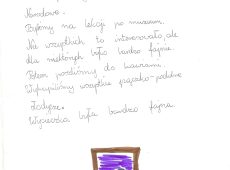 Narodowe.
Byliśmy na lekcji po muzeum.
Nie wszystkich to interesowało, ale
dla niektórych było bardzo fajnie.
Potem poszliśmy do kawiarni.
Wykupiliśmy wszystkie
Wycieczka była bardzo fajna.